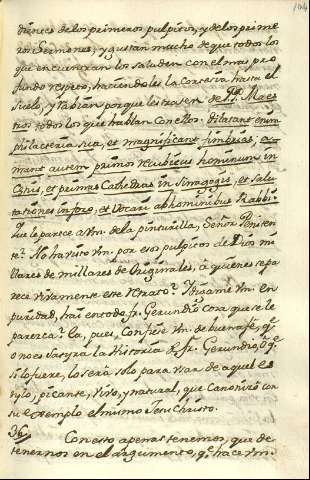 104
de los primeros pulpitos, y de los prime
ros sermones, y gustan mucho de que todos los
que encuentran los saluden con el mas pro
fundo respeto, haciendoles la cortesia hasta el
suelo, y rabian porque les traten de PP. Maes
tros todos los que hablan con ellos: dilatant enim
philacteria sua, et magnificant fimbrias, a
mant autem primos recubitus hominum in
Cœnis, et primas Cathedras in Sinagogis, et salu
tationes in foro, et Vocari ab hominibus Rabbi.
Que le parece a Vm. de la pinturilla, Señor Peniten
te? No ha visto Vm. por esos pulpitos de Dios mi
llares de millares de Originales, à quienes se pa
rece vivamente este retrato? Digame Vm. en
puridad, hai en todo fr. Gerundio cosa que se le
parezca? Ea, pues, confiese Vm. de buena fe, q.
o no es satyra la Historia de fr. Gerundio, ò q.e
si lo fuere, lo serà solo para usar de aquel es
tylo, picante, vivo, y natural, que canonizò con
su exemplo el mismo Jesu Christo.
36 Con esto apenas tenemos, que de
tenernos en el argumento, q.e hace Vm.